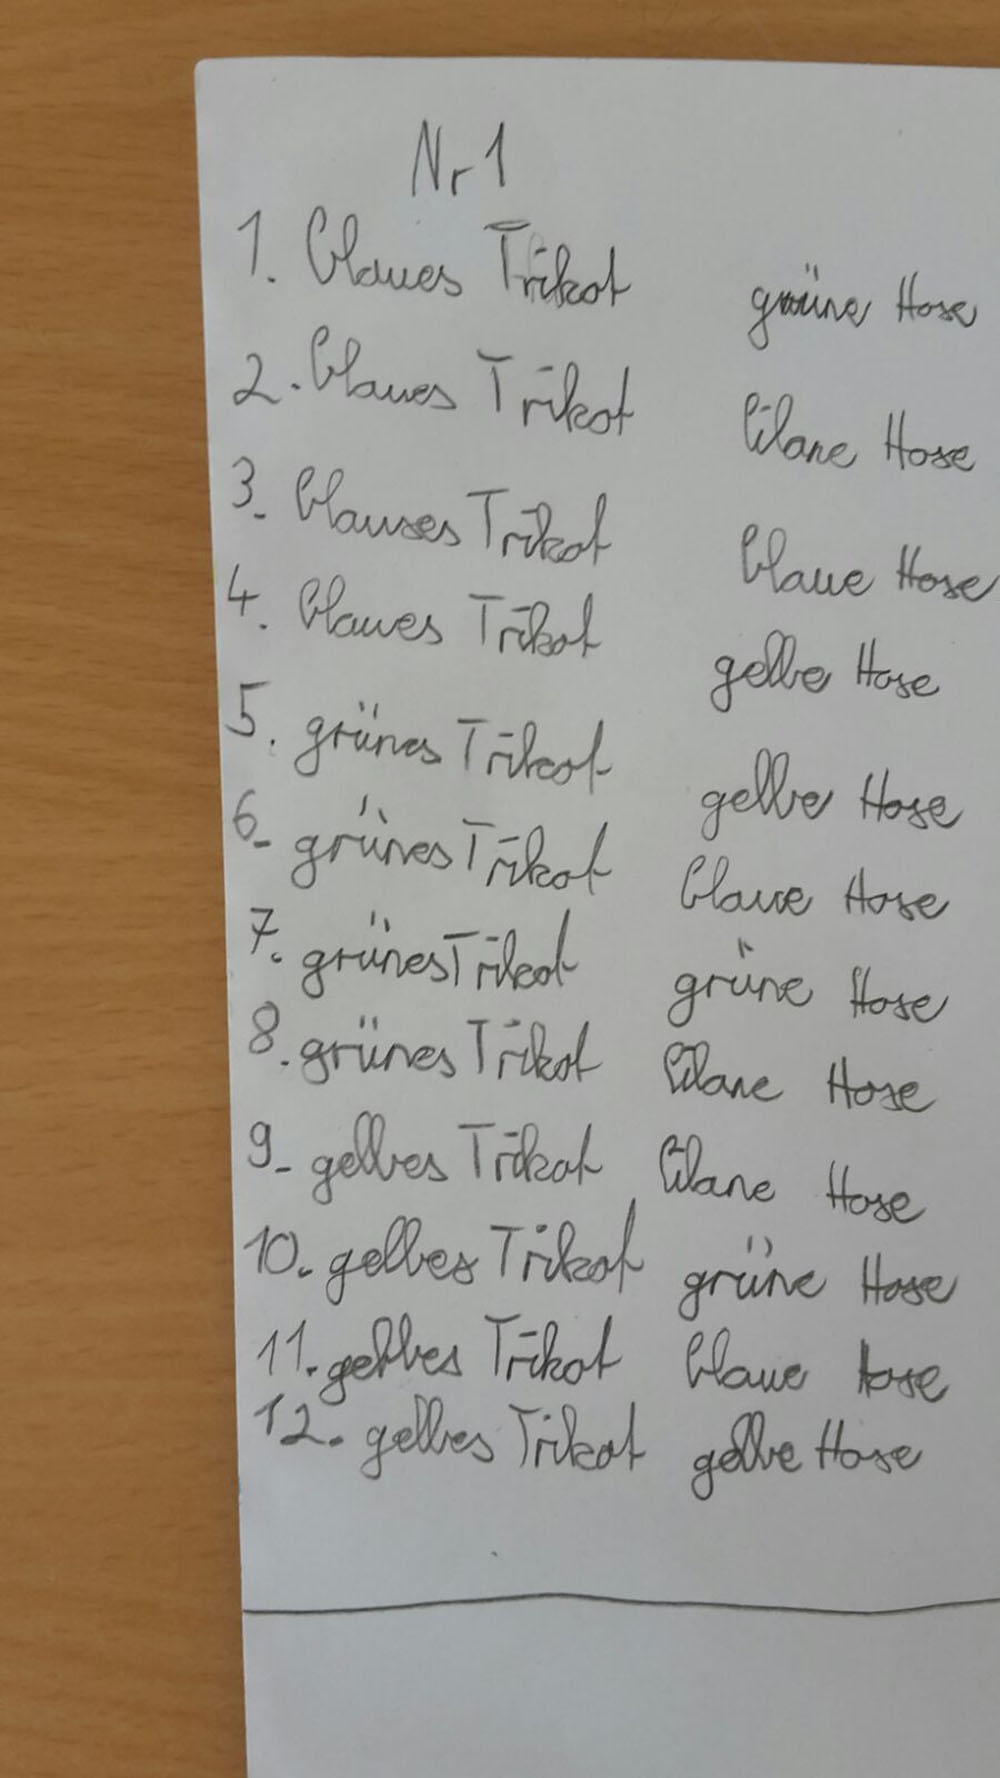 Nr 1
1. blaues Trikot grüne Hose
2. blaues Trikot lilane Hose
3. blauses Trikot blaue Hose
4. blaues Trikot gelbe Hose
5. grünes Trikot gelbe Hose
6. grünes Trikot blaue Hose
7. grünes Trikot grüne Hose
8. grünes Trikot lilane Hose
9. gelbes Trikot lilane Hose
10. gelbes Trikot grüne Hose
11. gelbes Trikot blaue Hose
12. gelbes Trikot gelbe Hose